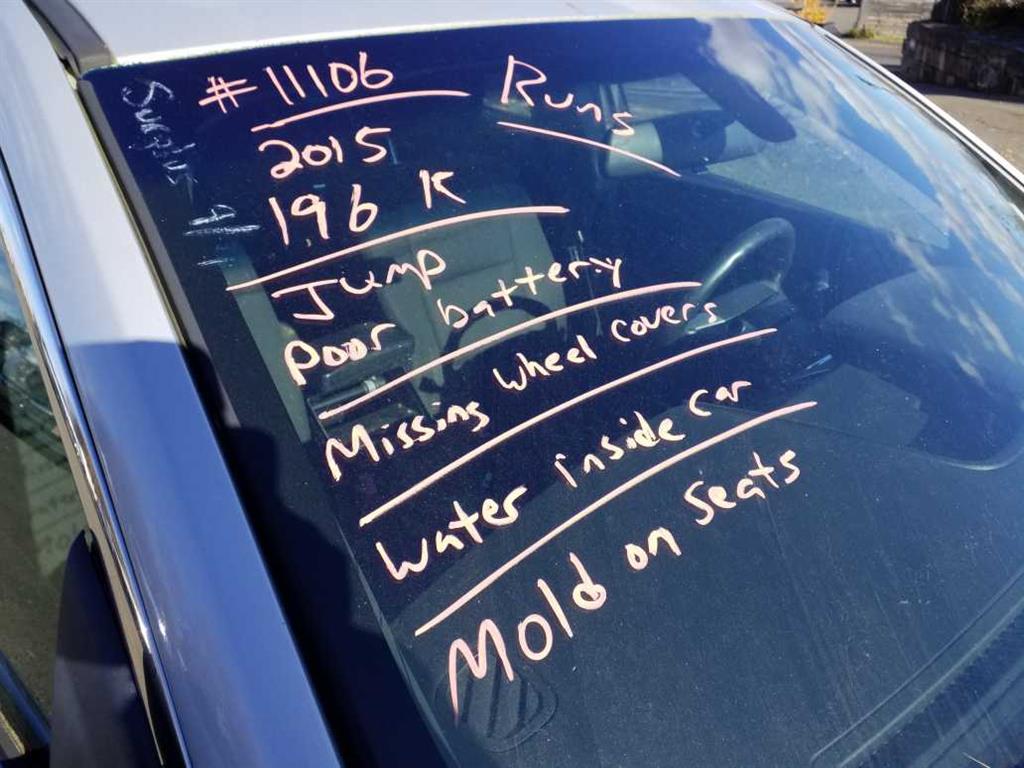 #11106
Runs
2015
196 K
Jump
Poor battery
Missing wheel covers
Water inside car
Mold on seats
Surplus